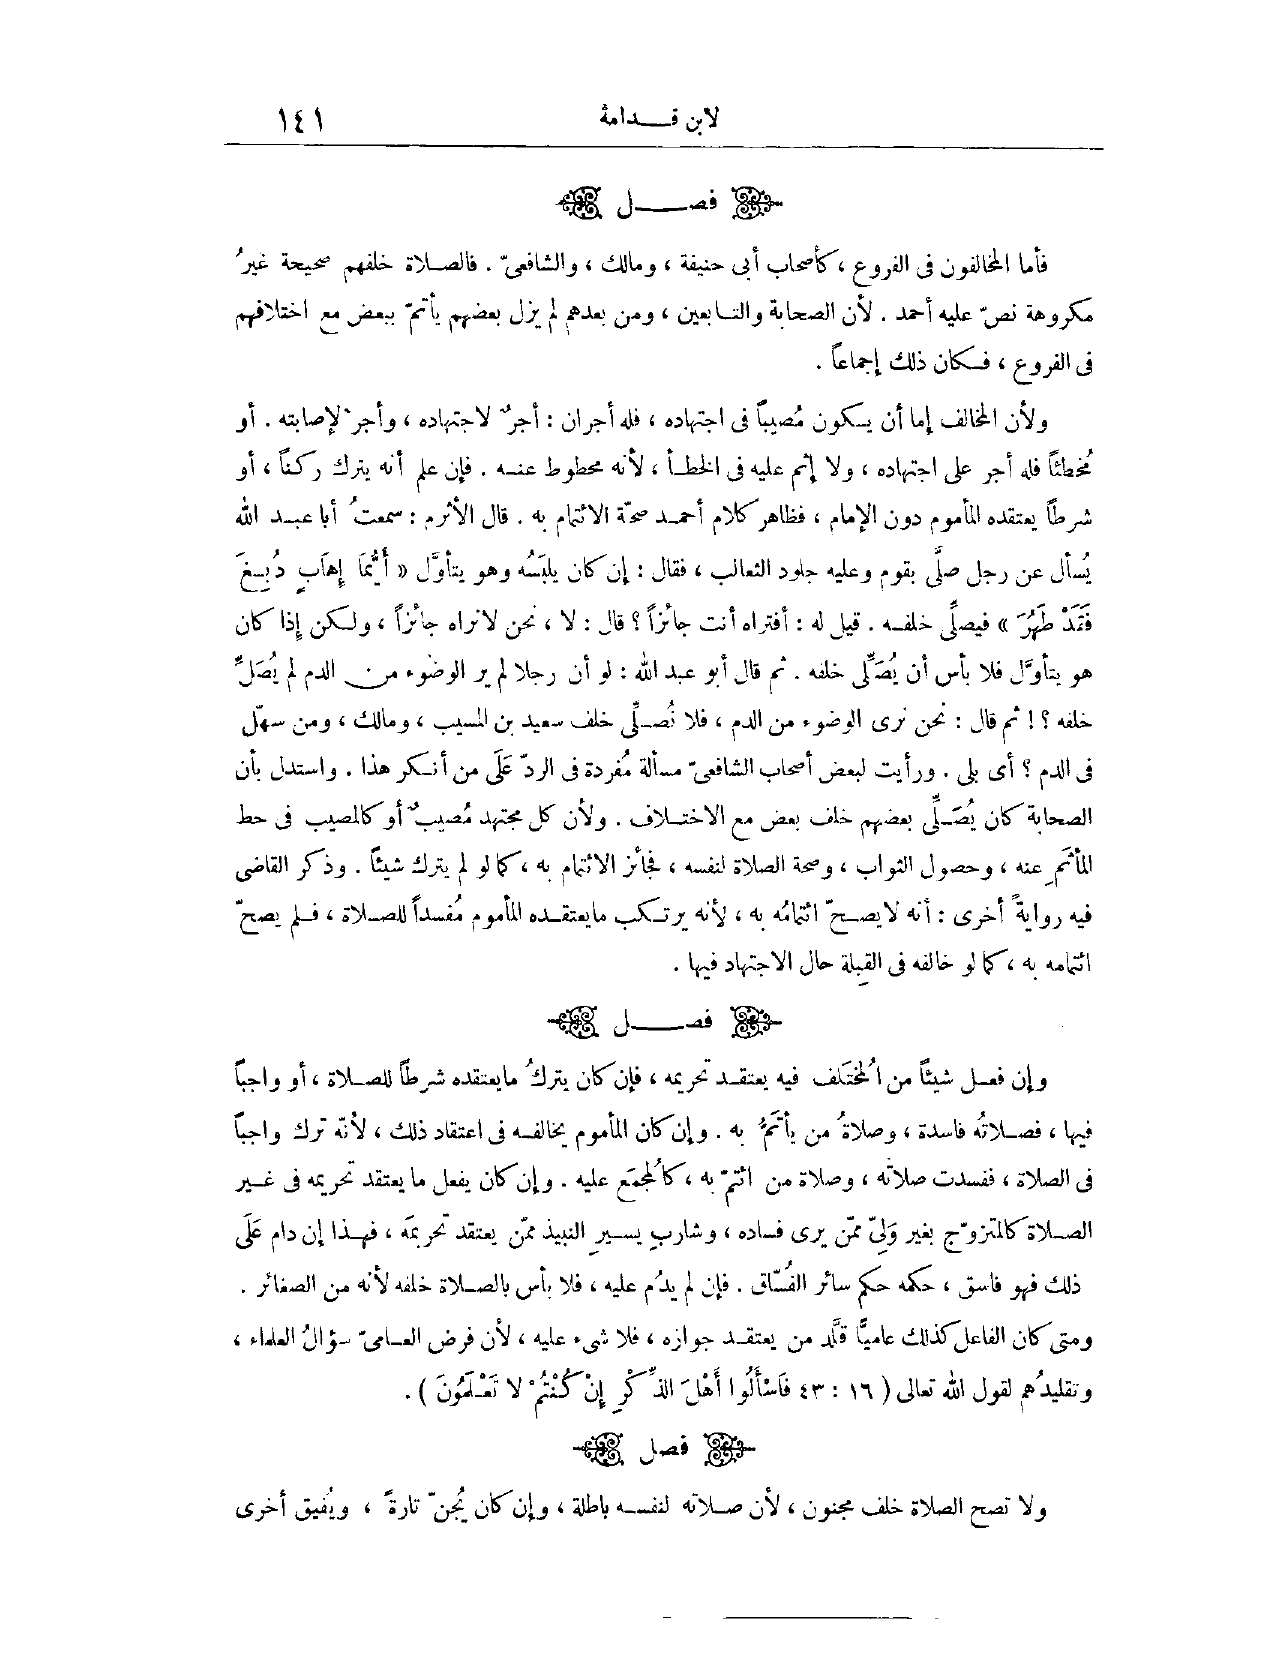 لابن قدامة ١٤١
فصل
فأما المخالفون فى الفروع ، كأصحاب أبى حنيفة ، ومالك ، والشافعىّ . فالصلاة خلفهم صحيحة غيرُ
مكروهة نصّ عليه أحمد . لأن الصحابة والتابعين ، ومن بعدهم لم يزل بعضهم يأتمّ ببعض مع اختلافهم
فى الفروع ، فكان ذلك إجماعاً .
ولأن المخالف إما أن يكون مُصيباً فى اجتهاده ، فله أجران : أجرٌ لاجتهاده ، وأجر لإصابته . أو
مُخطئاً فله أجر على اجتهاده ، ولا إثم عليه فى الخطأ ، لأنه محطوط عنه . فإن علم أنه يترك ركناً ، أو
شرطاً يعتقده المأموم دون الإمام ، فظاهر كلام أحمد صحّة الائتمام به . قال الأثرم : سمعتُ أبا عبد الله
يُسأل عن رجل صلَّى بقوم وعليه جلود الثعالب ، فقال : إن كان يلبَسُه وهو يتأوَّل « أَيُّمَا إِهَابٍ دُبِغَ
فَقَدْ طَهُرَ » فيصلِّى خلفه . قيل له : أفتراه أنت جائزاً ؟ قال : لا ، نحن لا نراه جائزاً ، ولكن إذا كان
هو يتأوَّل فلا بأس أن يُصَلِّى خلفه . ثم قال أبو عبد الله : لو أن رجلا لم ير الوضوء من الدم لم يُصَلِّ
خلفه ؟ ! ثم قال : نحن نرى الوضوء من الدم ، فلا نُصلِّى خلف سعيد بن المسيب ، ومالك ، ومن سهّل
فى الدم ؟ أى بلى . ورأيت لبعض أصحاب الشافعىّ مسألة مُفردة فى الردّ عَلَى من أنكر هذا . واستدل بأن
الصحابة كان يُصَلِّى بعضهم خلف بعض مع الاختلاف . ولأن كل مجتهد مُصيبٌ أو كالمصيب فى حط
المأثمِ عنه ، وحصول الثواب ، وصحة الصلاة لنفسه ، فجائز الائتمام به ، كما لو لم يترك شيئاً . وذكر القاضى
فيه روايةً أخرى : أنه لا يصحّ ائتمامُه به ، لأنه يرتكب ما يعتقده المأموم مُفسداً للصلاة ، فلم يصحّ
ائتمامه به ، كما لو خالفه فى القبلة حال الاجتهاد فيها .
فصل
وإن فعل شيئاً من المُختَلَف فيه يعتقد تحريمه ، فإن كان يتركُ ما يعتقده شرطاً للصلاة ، أو واجباً
فيها ، فصلاتُه فاسدة ، وصلاةُ من يأتَمُّ به . وإن كان المأموم يخالفه فى اعتقاد ذلك ، لأنّه ترك واجباً
فى الصلاة ، ففسدت صلاته ، وصلاة من ائتمّ به ، كالُمجمَع عليه . وإن كان يفعل ما يعتقد تحريمه فى غير
الصلاة كالمتزوّج بغير وَلِىّ ممّن يرى فساده ، وشاربِ يسيرِ النبيذ ممّن يعتقد تحريمَه ، فهذا إن دام عَلَى
ذلك فهو فاسق ، حكمه حكم سائر الفُسّاق . فإن لم يدُم عليه ، فلا بأس بالصلاة خلفه لأنه من الصغائر .
ومتى كان الفاعل كذلك عاميًّا قلَّد من يعتقد جوازه ، فلا شىء عليه ، لأن فرض العامىّ سؤالُ العلماء ،
وتقليدُهم لقول الله تعالى ( ١٦ : ٤٣ فَاسْأَلُوا أَهْلَ الذِّكْرِ إِنْ كُنْتُمْ لا تَعْلَمُونَ ) .
فصل
ولا تصح الصلاة خلف مجنون ، لأن صلاته لنفسه باطلة ، وإن كان يُجنّ تارةً ، ويُفيق أخرى